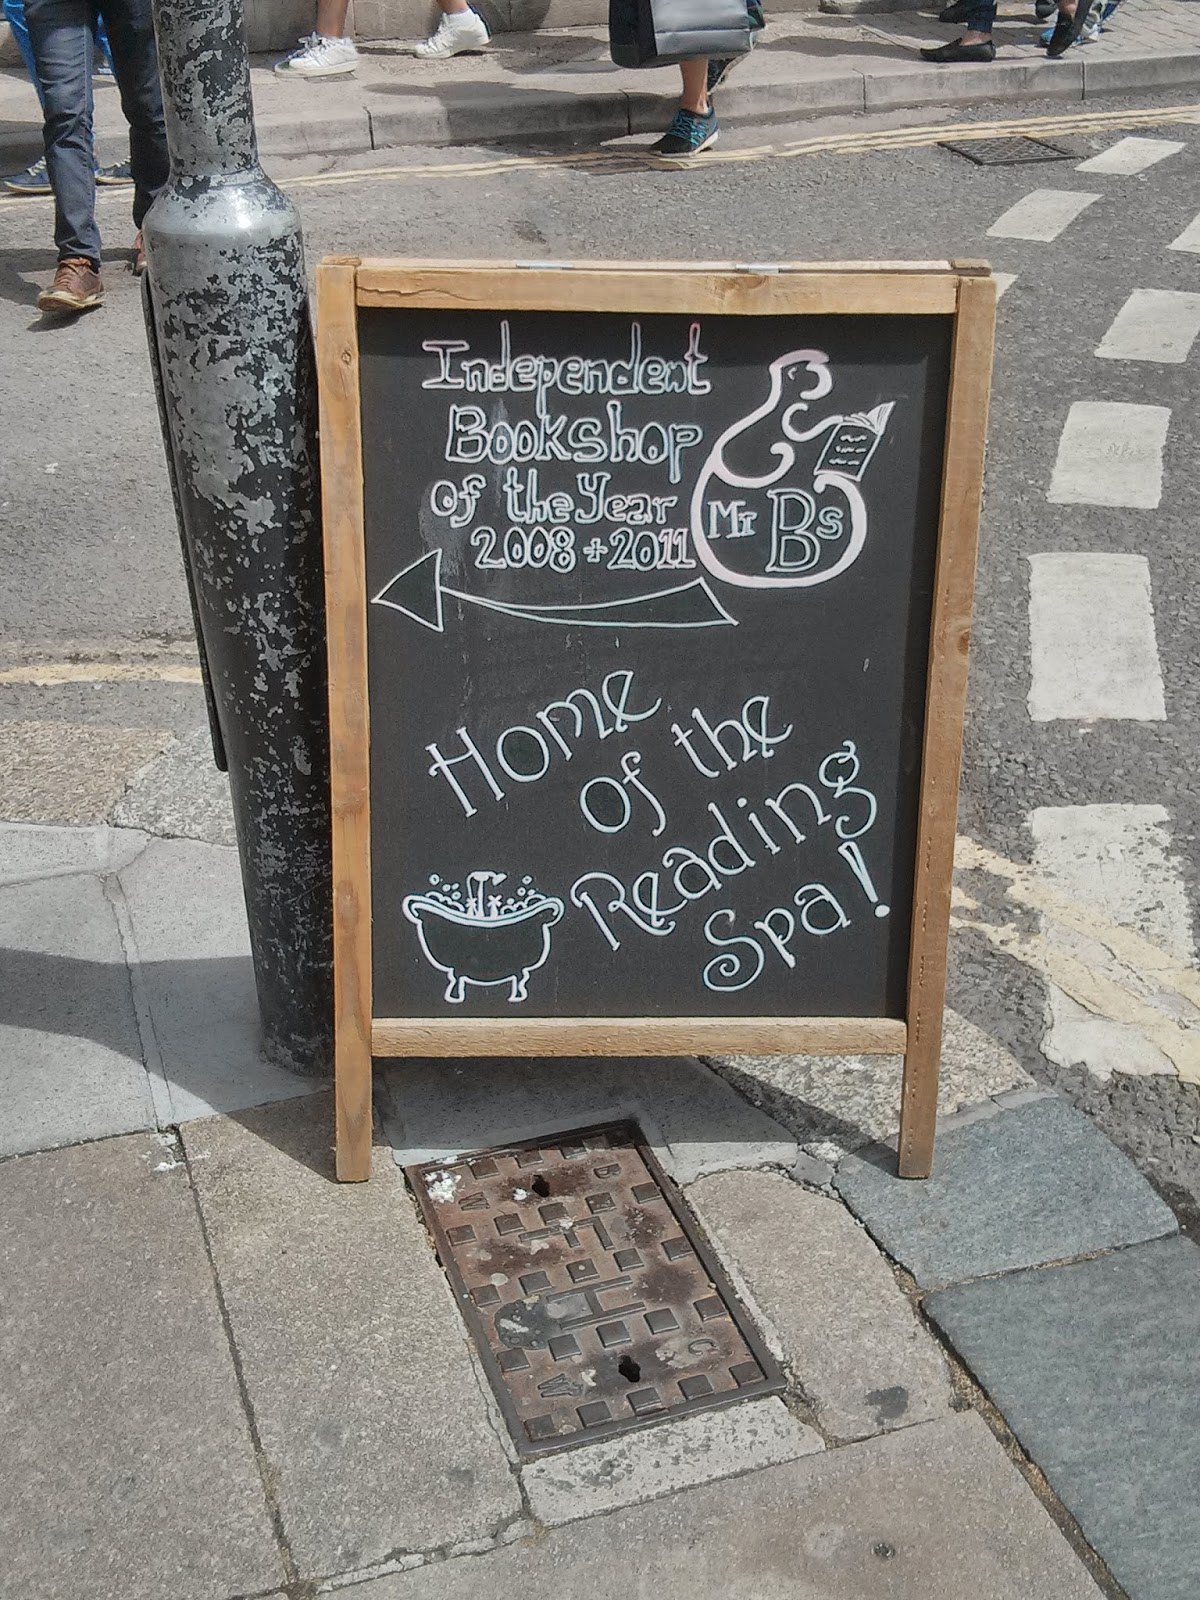 Independent
Bookshop
of the Year
2008 + 2011
Mr Bs
Home
of the
Reading
Spa!
B
W
C
W